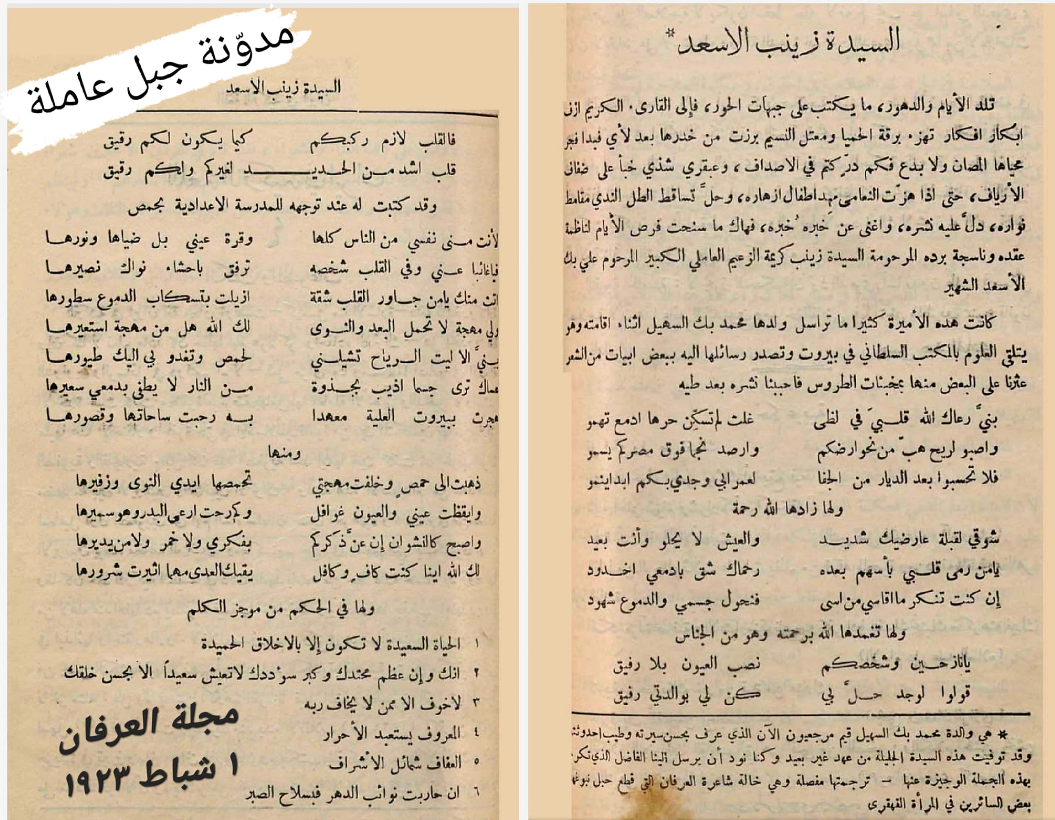 السيدة زينب الاسعد*
تلد الأيام والدهور، ما يكتب على جبهات الحور، فإلى القارىء الكريم ازف
ابكار افكار تهزء برقة الحميا ومعتل النسيم برزت من خدرها بعد لأي فبدا فجر
محياها المصان ولا بدع فكم درّ كتم في الاصداف، وعبقري شذي خبأ على ضفاف
الأرياف، حتى اذا هزت النعامى مهد اطفال ازهاره، وحلَّ تساقط الطل الندي مقامط
نواره، دلَّ عليه نشره، واغنى عن خَبره خُبره، فهاك ما سنحت فرص الأيام لناظمة
عقده وناسجة برده المرحومة السيدة زينب كريمة الزعيم العاملي الكبير المرحوم علي بك
الأسعد الشهير
كانت هذه الأميرة كثيرا ما تراسل ولدها محمد بك السهيل اثناء اقامته وهو
يتلقى العلوم بالمكتب السلطاني في بيروت وتصدر رسائلها اليه ببعض ابيات من الشعر
عثرنا على البعض منها بمخبئات الطروس فاحببنا نشره بعد طيه
بنيَّ رعاك الله قلبيَ في لظى غلت لم تسكّن حرها ادمع تهمو
واصبو لريح هبّ من نحو ارضكم وارصد نجما فوق مصركم يسمو
فلا تحسبوا بعد الديار من الجفا لعمر ابي وجدي بكم ابدا ينمو
ولها زادها الله رحمة
شوقي لقبلة عارضيك شديد والعيش لا يحلو وأنت بعيد
يامن رمى قلبي بأسهم بعده رحماك شق بادمعي اخدود
إن كنت تنكر ما اقاسي من اسى فنحول جسمي والدموع شهود
ولها تغمدها الله برحمته وهو من الجناس
يانازحين وشخصكم نصب العيون بلا رفيق
قولوا لوجد حلَّ بي كن لي بوالدتي رفيق
* هي والدة محمد بك السهيل قيم مرجعيون الآن الذي عرف بحسن سيرته وطيب احدوثته
وقد توفيت هذه السيدة الجليلة من عهد غير بعيد وكنا نود أن يرسل الينا الفاضل الذي تكرم
بهذه الجملة الوجيزة عنها – ترجمتها مفصلة وهي خالة شاعرة العرفان التي قطع حبل نبوغها
بعض السائرين في المرأة القهقرى
مدوّنة جبل عاملة
السيدة زينب الأسعد
فالقلب لازم ركبكم كيما يكون لكم رفيق
قلب اشد من الحديد لغيركم ولكم رقيق
وقد كتبت له عند توجهه للمدرسة الاعدادية بحمص
لأنت منى نفسي من الناس كلها وقرة عيني بل ضياها ونورها
فياغائبا عني وفي القلب شخصه ترفق باحشاء نواك نصيرها
اتت منك يامن جاور القلب شقة ازيلت بتسكاب الدموع سطورها
ولي مهجة لا تحمل البعد والنوى لك الله هل من مهجة استعيرها
بنيَّ الا ليت الرياح تشيلني لحمص وتغدو بي اليك طيورها
عماك ترى جسما اذيب بجذوة من النار لا يطفى بدمعي سعيرها
هجرت ببيروت العلية معهدا به رحبت ساحاتها وقصورها
ومنها
ذهبت الى حمص وخلفت مهجتي تحمصها ايدي النوى وزفيرها
وايقظت عيني والعيون غوافل وكم رحت ارعى البدر وهو سميرها
واصبح كالنشوان إن عنَّ ذكركم بفكري ولا خمر ولا من يديرها
لك الله اينا كنت كاف وكافل يقيك العدى مهما اثيرت شرورها
ولها في الحكم من موجز الكلم
١ الحياة السعيدة لا تكون إلا بالاخلاق الحميدة
٢ انك وإن عظم محتدك وكبر سوددك لا تعيش سعيداً الا بحسن خلقك
٣ لاخوف الا ممن لا يخاف ربه
٤ المعروف يستعبد الأحرار
٥ العفاف شمائل الأشراف
٦ ان حاربت نوائب الدهر فبسلاح الصبر
مجلة العرفان
١ شباط ١٩٢٣